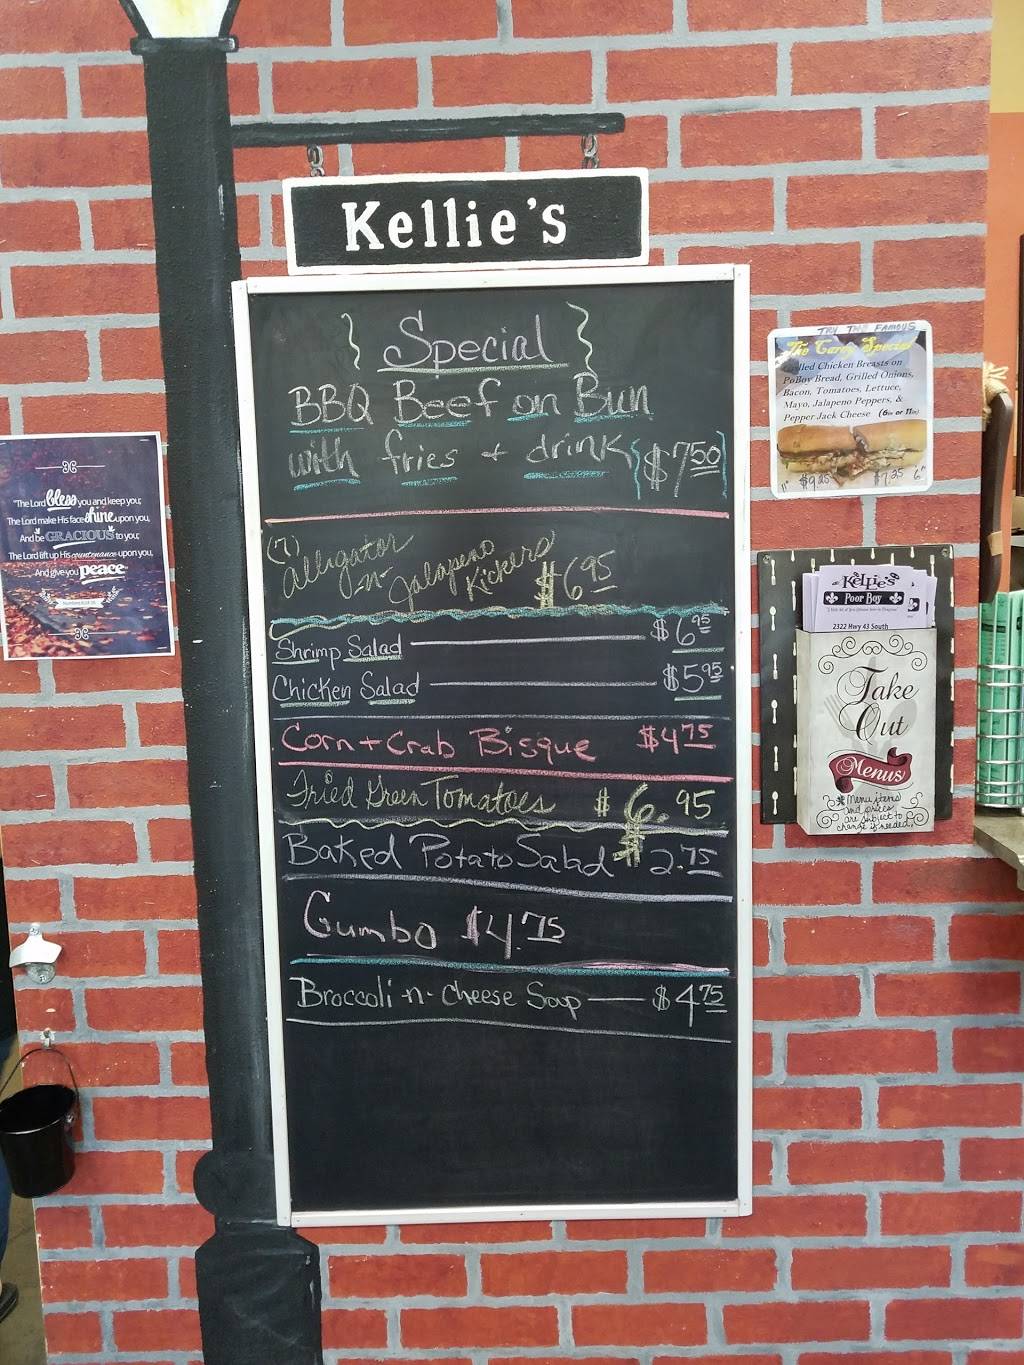 Kellie's
Special
BBQ Beef on Bun
with fries + drink $7.50
(7) Alligator
-n- Jalapeno
Kickers $6.95
Shrimp Salad $6.95
Chicken Salad $5.95
Corn + Crab Bisque $4.75
Fried Green Tomatoes $6.95
Baked Potato Salad $2.75
Gumbo $4.75
Broccoli -n- Cheese Soup $4.75
"The Lord bless you and keep you;
The Lord make His face shine upon you,
And be GRACIOUS to you;
The Lord lift up His countenance upon you,
And give you peace."
TRY THE FAMOUS
The Carey Special
Grilled Chicken Breasts on
PoBoy Bread, Grilled Onions,
Bacon, Tomatoes, Lettuce,
Mayo, Jalapeno Peppers, &
Pepper Jack Cheese (6in or 11in)
11" $7.25 6"
Kellie's
Poor Boy
2322 Hwy 43 South
Take
Out
Menus
Menu items
and prices
are subject to
change if needed.